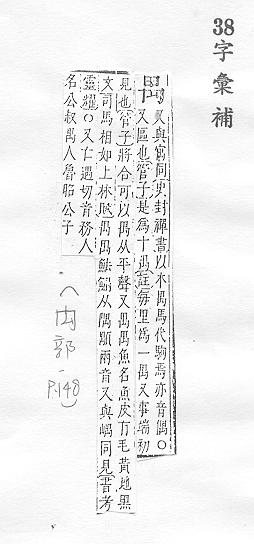 38字彙補
禺又與寓同史封禪書以木禺馬代駒焉亦音偶○
又區也管子是為十禺註每里為一禺又事端初
見也管子將合可以禺从平聲又禺禺魚名魚皮有毛黃地黑
文司馬相如上林賦禺禺魼鰨从隅顒兩音又與嵎同見書考
靈耀○又仁遇切音務人
名公叔禺人魯昭公子
(禸部-P.148)